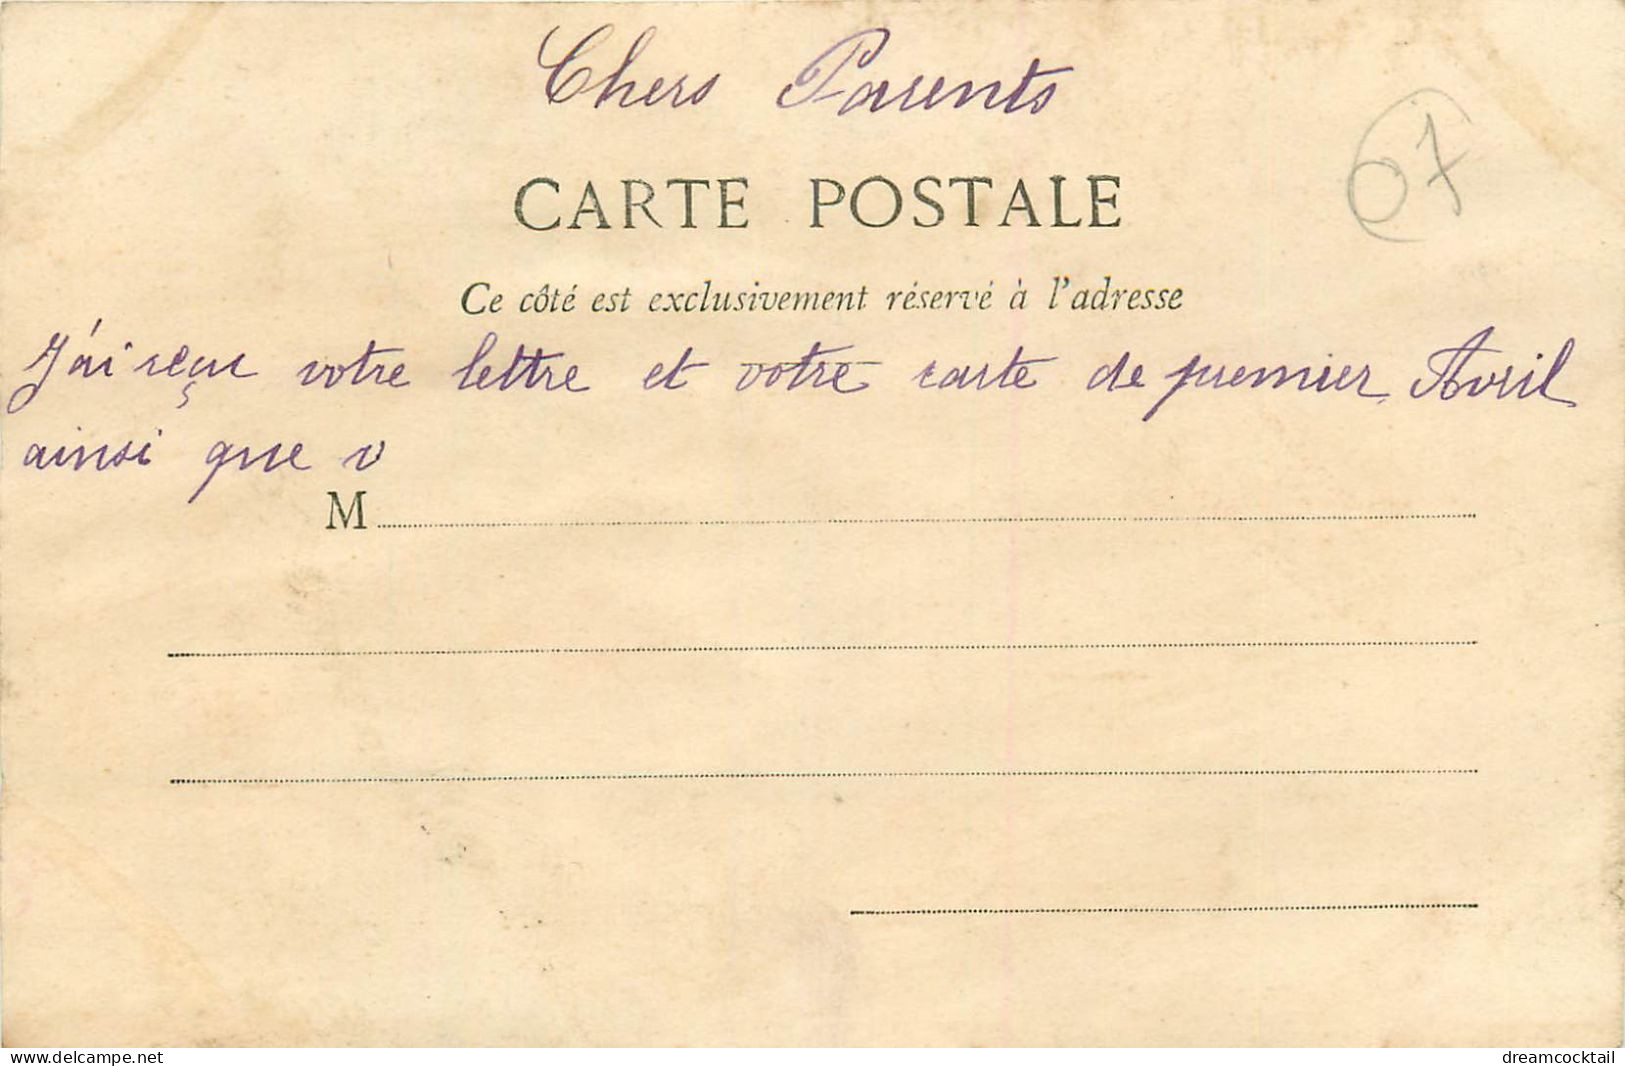 Chers Parents
07
CARTE POSTALE
Ce côté est exclusivement réservé à l'adresse
J'ai reçu votre lettre et votre carte de premier Avril
ainsi que v
M
www.delcampe.net
dreamcocktail